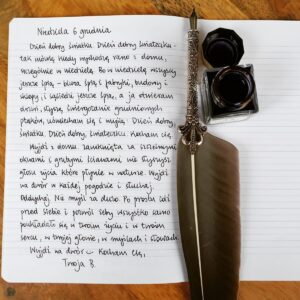 Niedziela 6 grudnia
Dzień dobry Światku. Dzień dobry Światełku -
tak mówię kiedy wychodzę rano z domu,
szczególnie w niedzielę. Bo w niedzielę wszyscy
jeszcze śpią - biura śpią i fabryki, budowy i
sklepy, i sąsiedzi jeszcze śpią, a ja otwieram
drzwi, słyszę świergotanie grudniowych
ptaków, uśmiecham się i mówię: Dzień dobry
Światku. Dzień dobry, Światełku. Kocham Cię.
Wyjdź z domu. Zamknięta za szczelnymi
oknami i grubymi ścianami nie słyszysz
głosu życia które płynie w naturze. Wyjdź
na dwór w każdej pogodzie i słuchaj.
Oddychaj. Nie myśl za dużo. Po prostu idź
przed siebie i pozwól żeby wszystko samo
poukładało się w twoim życiu i w twoim
sercu, w twojej głowie, w myślach i słowach.
Wyjdź na dwór - Kocham Cię,
Twoja B.